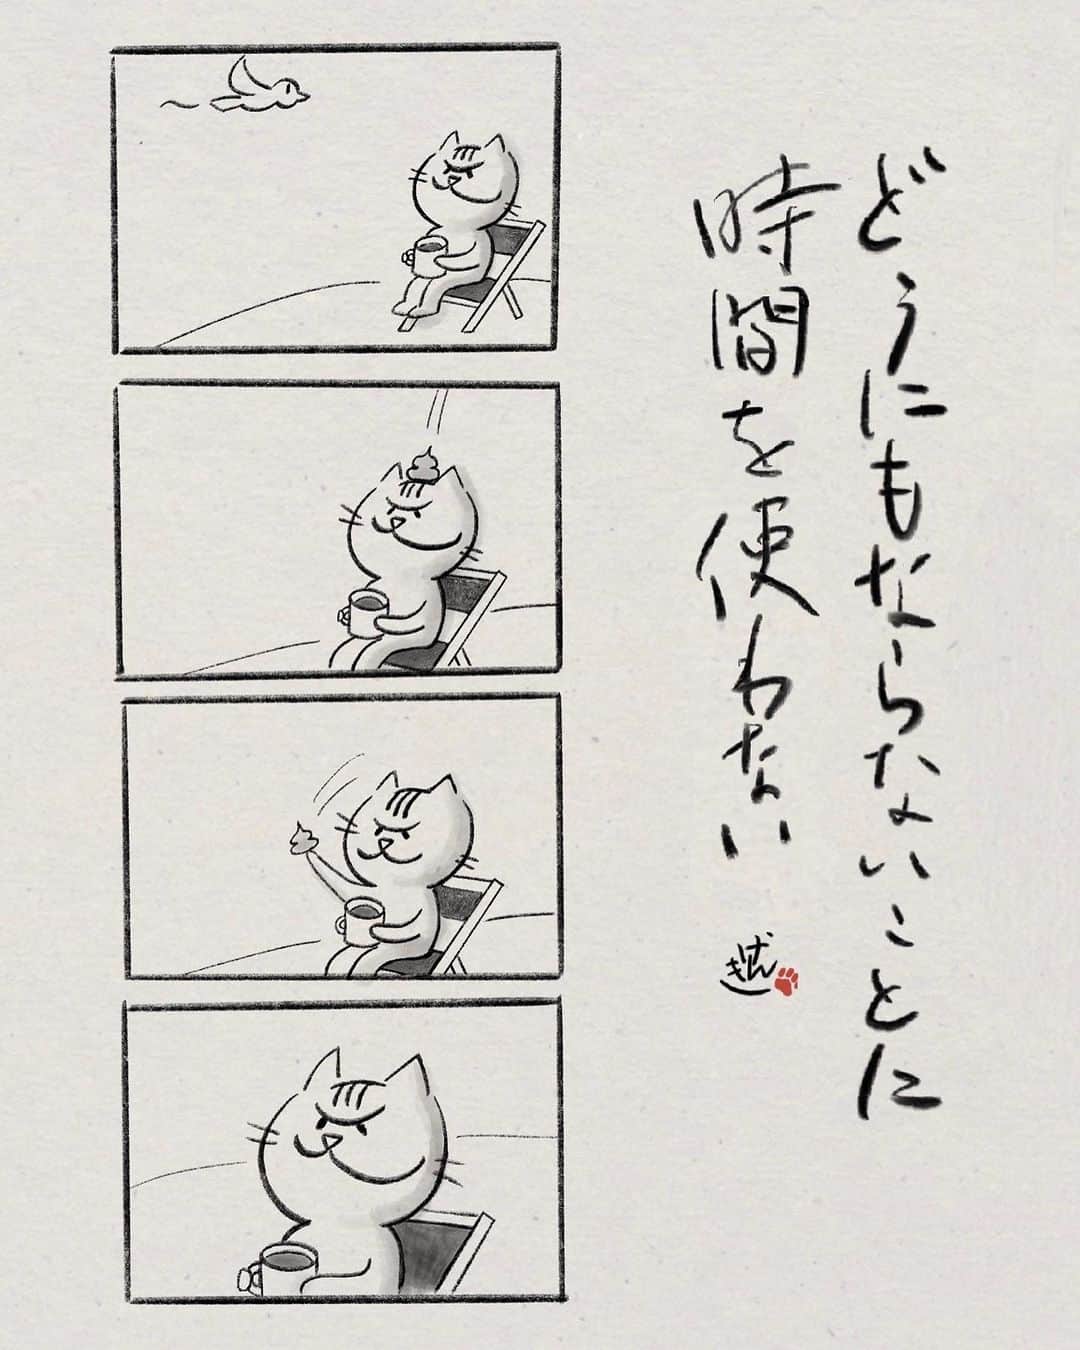 どうにもならないことに
時間を使わない